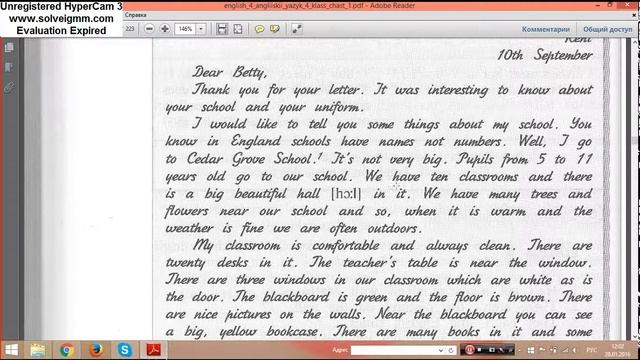 Unregistered HyperCam 3
www.solveigmm.com
Evaluation Expired
english_4_angliiskii_yazyk_4_klass_chast_1.pdf - Adobe Reader
Справка
223
146%
Комментарии
Общий доступ
Kent
10th September
Dear Betty,
Thank you for your letter. It was interesting to know about
your school and your uniform.
I would like to tell you some things about my school. You
know in England schools have names not numbers. Well, I go
to Cedar Grove School.¹ It's not very big. Pupils from 5 to 11
years old go to our school. We have ten classrooms and there
is a big beautiful hall [hɔ:l] in it. We have many trees and
flowers near our school and so, when it is warm and the
weather is fine we are often outdoors.
My classroom is comfortable and always clean. There are
twenty desks in it. The teacher's table is near the window.
There are three windows in our classroom which are white as is
the door. The blackboard is green and the floor is brown. There
are nice pictures on the walls. Near the blackboard you can see
a big, yellow bookcase. There are many books in it and some
Адрес
РУС
12:02
28.01.2016